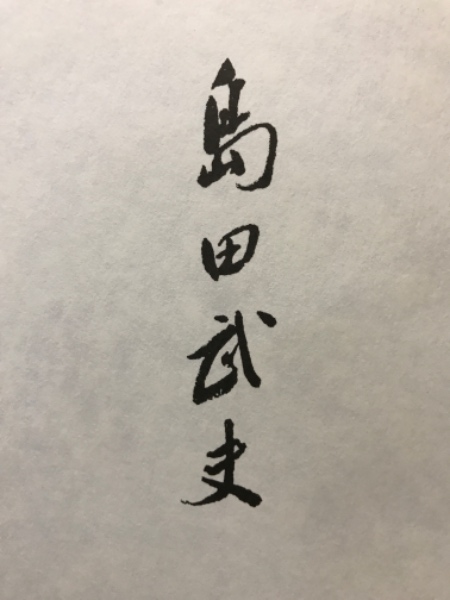 島田武史